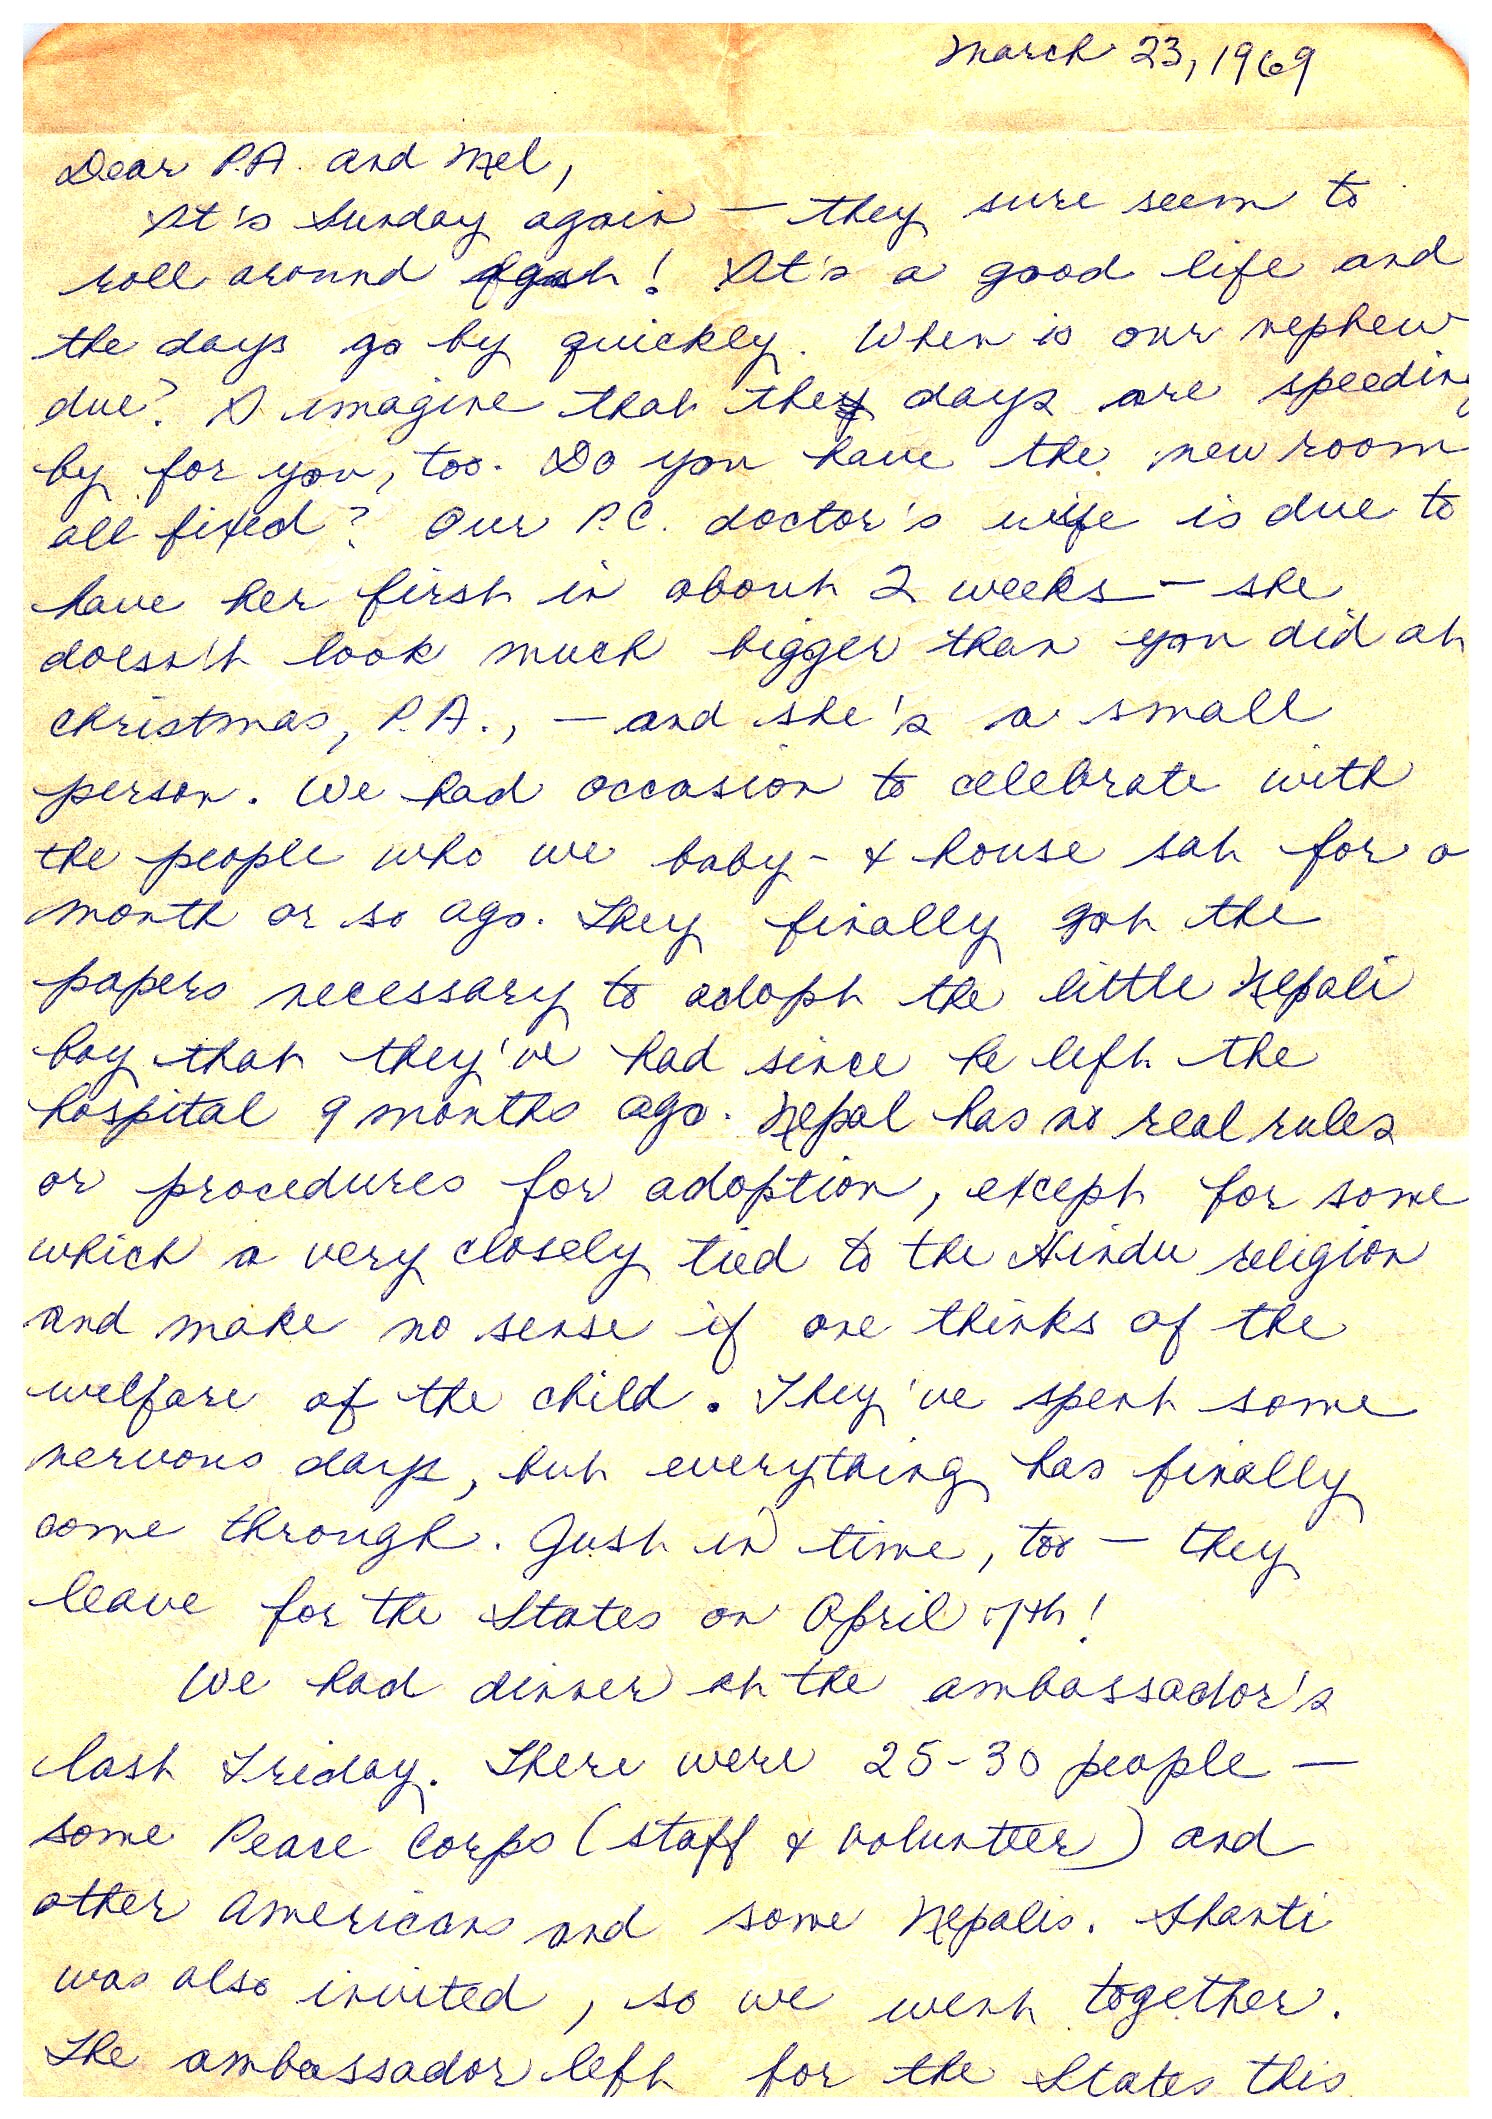 March 23, 1969
Dear P.A. and Mel,
It's Sunday again — they sure seem to
roll around fast! It's a good life and
the days go by quickly. When is our nephew
due? I imagine that the days are speeding
by for you, too. Do you have the new room
all fixed? Our P.C. doctor's wife is due to
have her first in about 2 weeks — she
doesn't look much bigger than you did at
Christmas, P.A., — and she's a small
person. We had occasion to celebrate with
the people who we baby- & house sat for a
month or so ago. They finally got the
papers necessary to adopt the little Nepali
boy that they've had since he left the
hospital 9 months ago. Nepal has no real rules
or procedures for adoption, except for some
which a very closely tied to the Hindu religion
and make no sense if one thinks of the
welfare of the child. They've spent some
nervous days, but everything has finally
come through. Just in time, too — they
leave for the States on April 7th!
We had dinner at the ambassador's
last Friday. There were 25-30 people —
some Peace Corps (staff & volunteer) and
other Americans and some Nepalis. Shanti
was also invited, so we went together.
The ambassador left for the States this